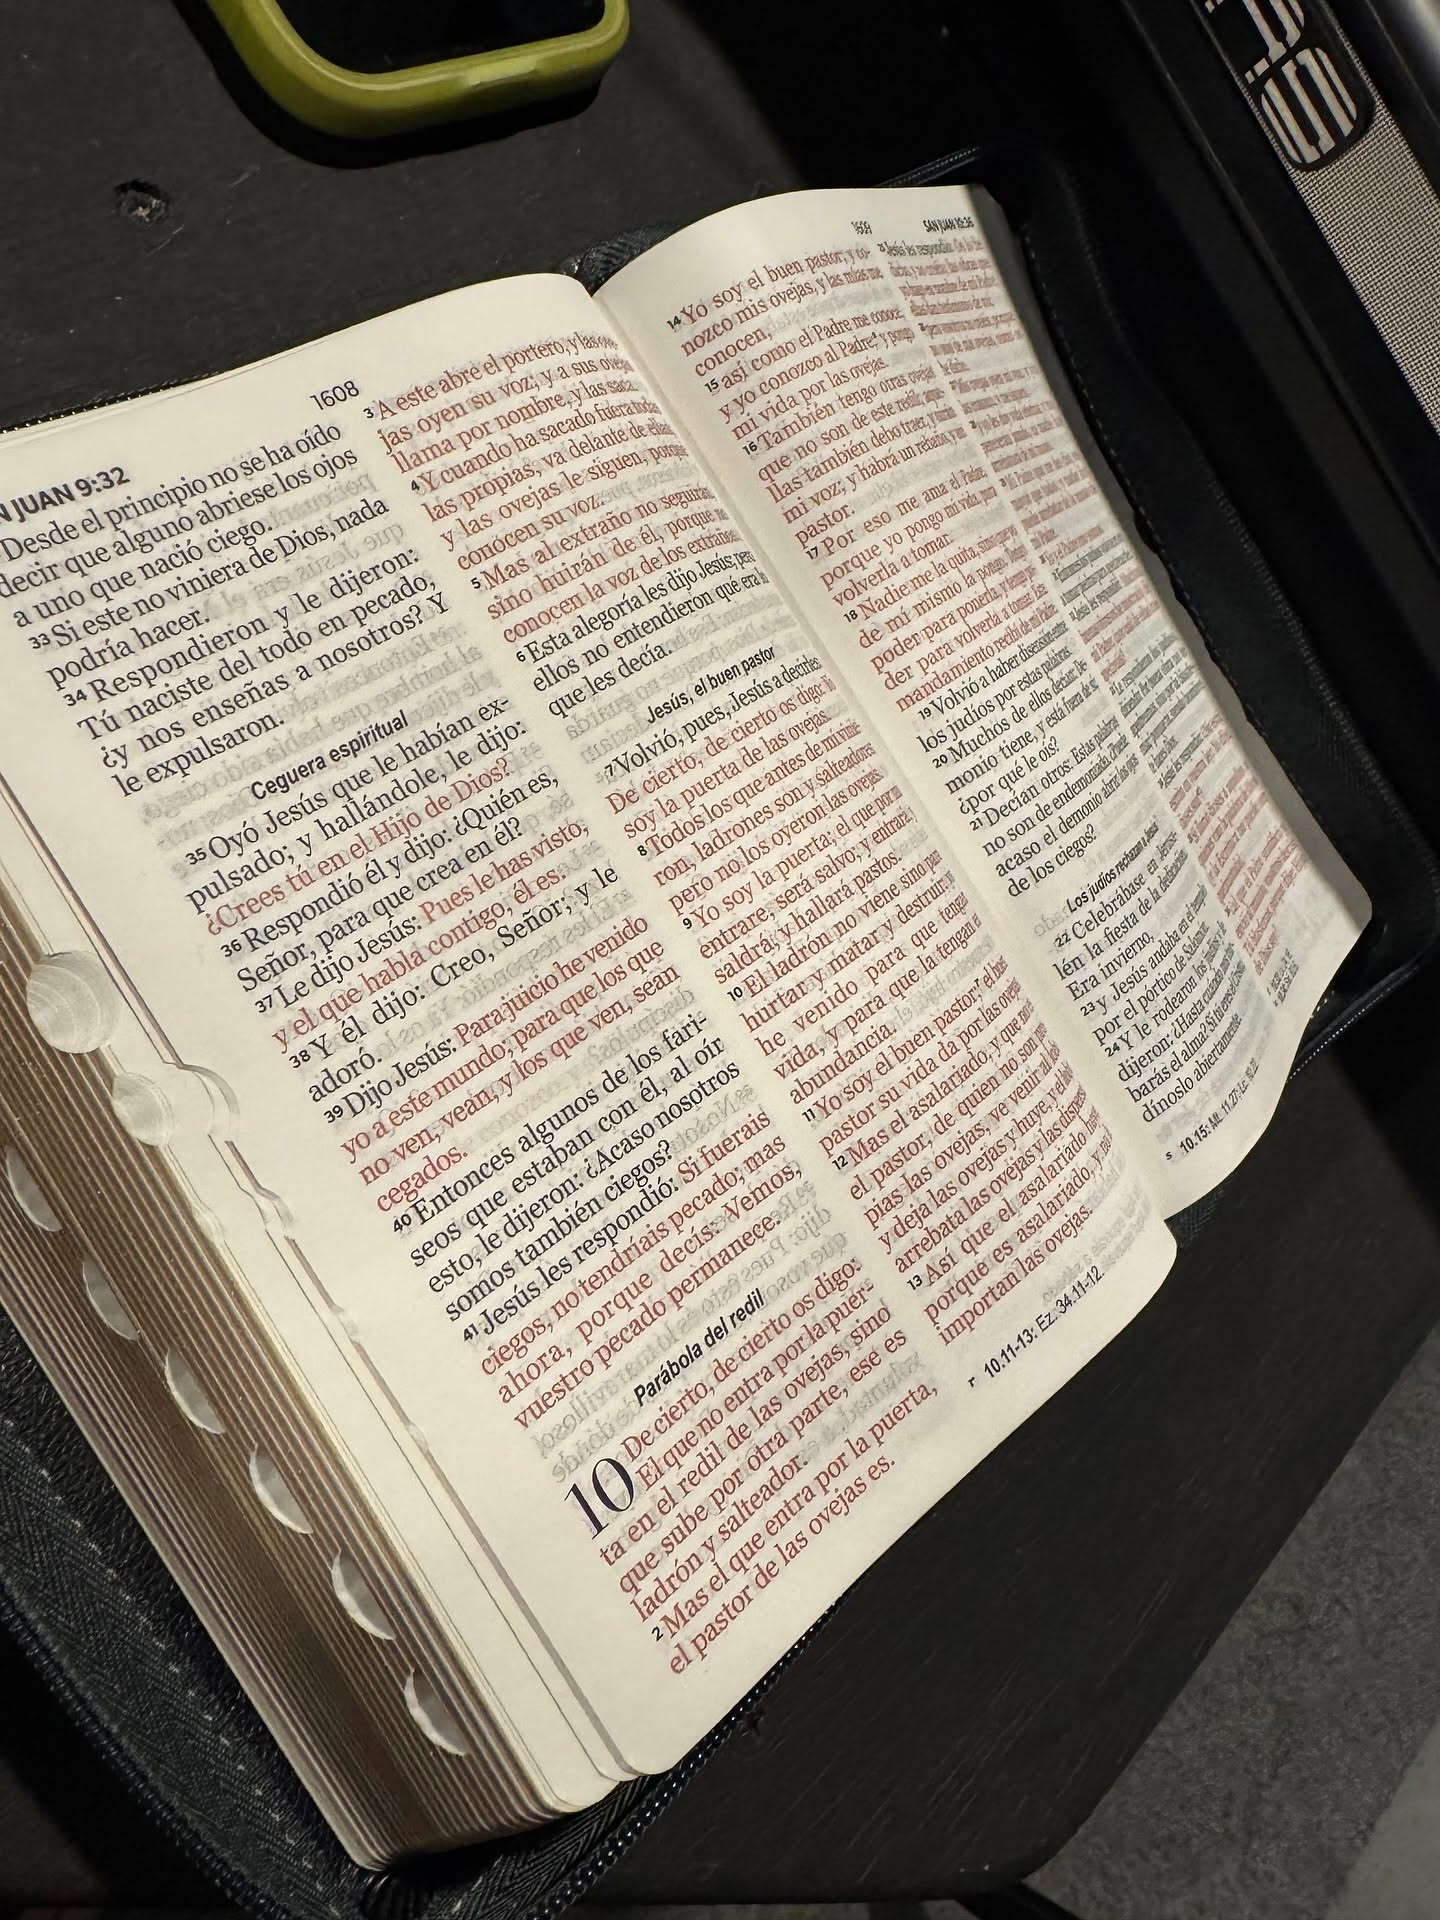 N JUAN 9:32
1608
Desde el principio no se ha oído
decir que alguno abriese los ojos
a uno que nació ciego.
33 Si este no viniera de Dios, nada
podría hacer.
34 Respondieron y le dijeron:
Tú naciste del todo en pecado,
¿y nos enseñas a nosotros? Y
le expulsaron.
Ceguera espiritual
35 Oyó Jesús que le habían ex-
pulsado; y hallándole, le dijo:
¿Crees tú en el Hijo de Dios?
36 Respondió él y dijo: ¿Quién es,
Señor, para que crea en él?
37 Le dijo Jesús: Pues le has visto,
y el que habla contigo, él es.
38 Y él dijo: Creo, Señor; y le
adoró.
39 Dijo Jesús: Para juicio he venido
yo a este mundo; para que los que
no ven, vean, y los que ven, sean
cegados.
40 Entonces algunos de los fari-
seos que estaban con él, al oír
esto, le dijeron: ¿Acaso nosotros
somos también ciegos?
41 Jesús les respondió: Si fuerais
ciegos, no tendríais pecado; mas
ahora, porque decís: Vemos,
vuestro pecado permanece.
Parábola del redil
10 De cierto, de cierto os digo:
El que no entra por la puer-
ta en el redil de las ovejas, sino
que sube por otra parte, ese es
ladrón y salteador.
2 Mas el que entra por la puerta,
el pastor de las ovejas es.
3 A este abre el portero, y las ove-
jas oyen su voz; y a sus ovejas
llama por nombre, y las saca.
4 Y cuando ha sacado fuera todas
las propias, va delante de ellas;
y las ovejas le siguen, porque
conocen su voz.
5 Mas al extraño no seguirán,
sino huirán de él, porque no
conocen la voz de los extraños.
6 Esta alegoría les dijo Jesús; pero
ellos no entendieron qué era lo
que les decía.
Jesús, el buen pastor
7 Volvió, pues, Jesús a decirles:
De cierto, de cierto os digo: Yo
soy la puerta de las ovejas.
8 Todos los que antes de mí vinie-
ron, ladrones son y salteadores;
pero no los oyeron las ovejas.
9 Yo soy la puerta; el que por mí
entrare, será salvo; y entrará, y
saldrá, y hallará pastos.
10 El ladrón no viene sino para
hurtar y matar y destruir; yo
he venido para que tengan
vida, y para que la tengan en
abundancia.
11 Yo soy el buen pastor; el buen
pastor su vida da por las ovejas.
12 Mas el asalariado, y que no es
el pastor, de quien no son pro-
pias las ovejas, ve venir al lobo
y deja las ovejas y huye, y el lobo
arrebata las ovejas y las dispersa.
13 Así que el asalariado huye,
porque es asalariado, y no le
importan las ovejas.
r 10.11-13: Ez. 34.11-12.
1609
SAN JUAN 10:36
14 Yo soy el buen pastor; y co-
nozco mis ovejas, y las mías me
conocen,
15 así como el Padre me conoce,
y yo conozco al Padre; y pongo
mi vida por las ovejas.
16 También tengo otras ovejas
que no son de este redil; aque-
llas también debo traer, y oirán
mi voz; y habrá un rebaño, y un
pastor.
17 Por eso me ama el Padre,
porque yo pongo mi vida, para
volverla a tomar.
18 Nadie me la quita, sino que yo
de mí mismo la pongo. Tengo
poder para ponerla, y tengo po-
der para volverla a tomar. Este
mandamiento recibí de mi Padre.
19 Volvió a haber disensión entre
los judíos por estas palabras.
20 Muchos de ellos decían: De-
monio tiene, y está fuera de sí;
¿por qué le oís?
21 Decían otros: Estas palabras
no son de endemoniado. ¿Puede
acaso el demonio abrir los ojos
de los ciegos?
Los judíos rechazan a Jesús
22 Celebrábase en Jerusa-
lén la fiesta de la dedicación.
Era invierno,
23 y Jesús andaba en el templo
por el pórtico de Salomón.
24 Y le rodearon los judíos y le
dijeron: ¿Hasta cuándo nos tur-
barás el alma? Si tú eres el Cristo,
dínoslo abiertamente.
s 10.15: Mt. 11.27; Lc. 10.22.
Jesús les respondió: Os lo he